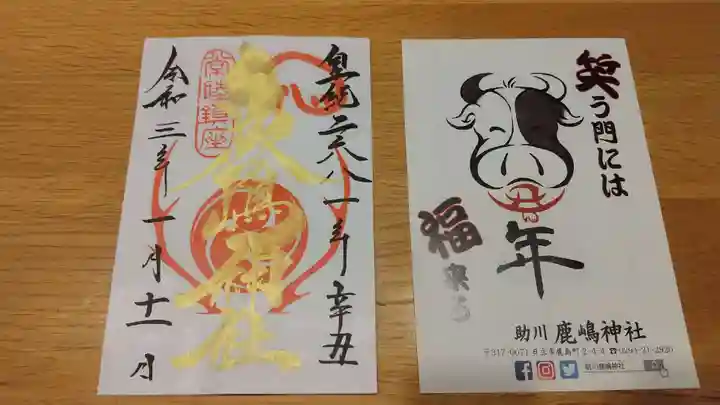 皇紀二六八一年辛丑
常陸鎮座
鹿嶋神社
令和三年一月十一日
笑う門には
福来る
丑
年
助川 鹿嶋神社
〒317-0071 日立市鹿島町2-4-4
助川鹿嶋神社